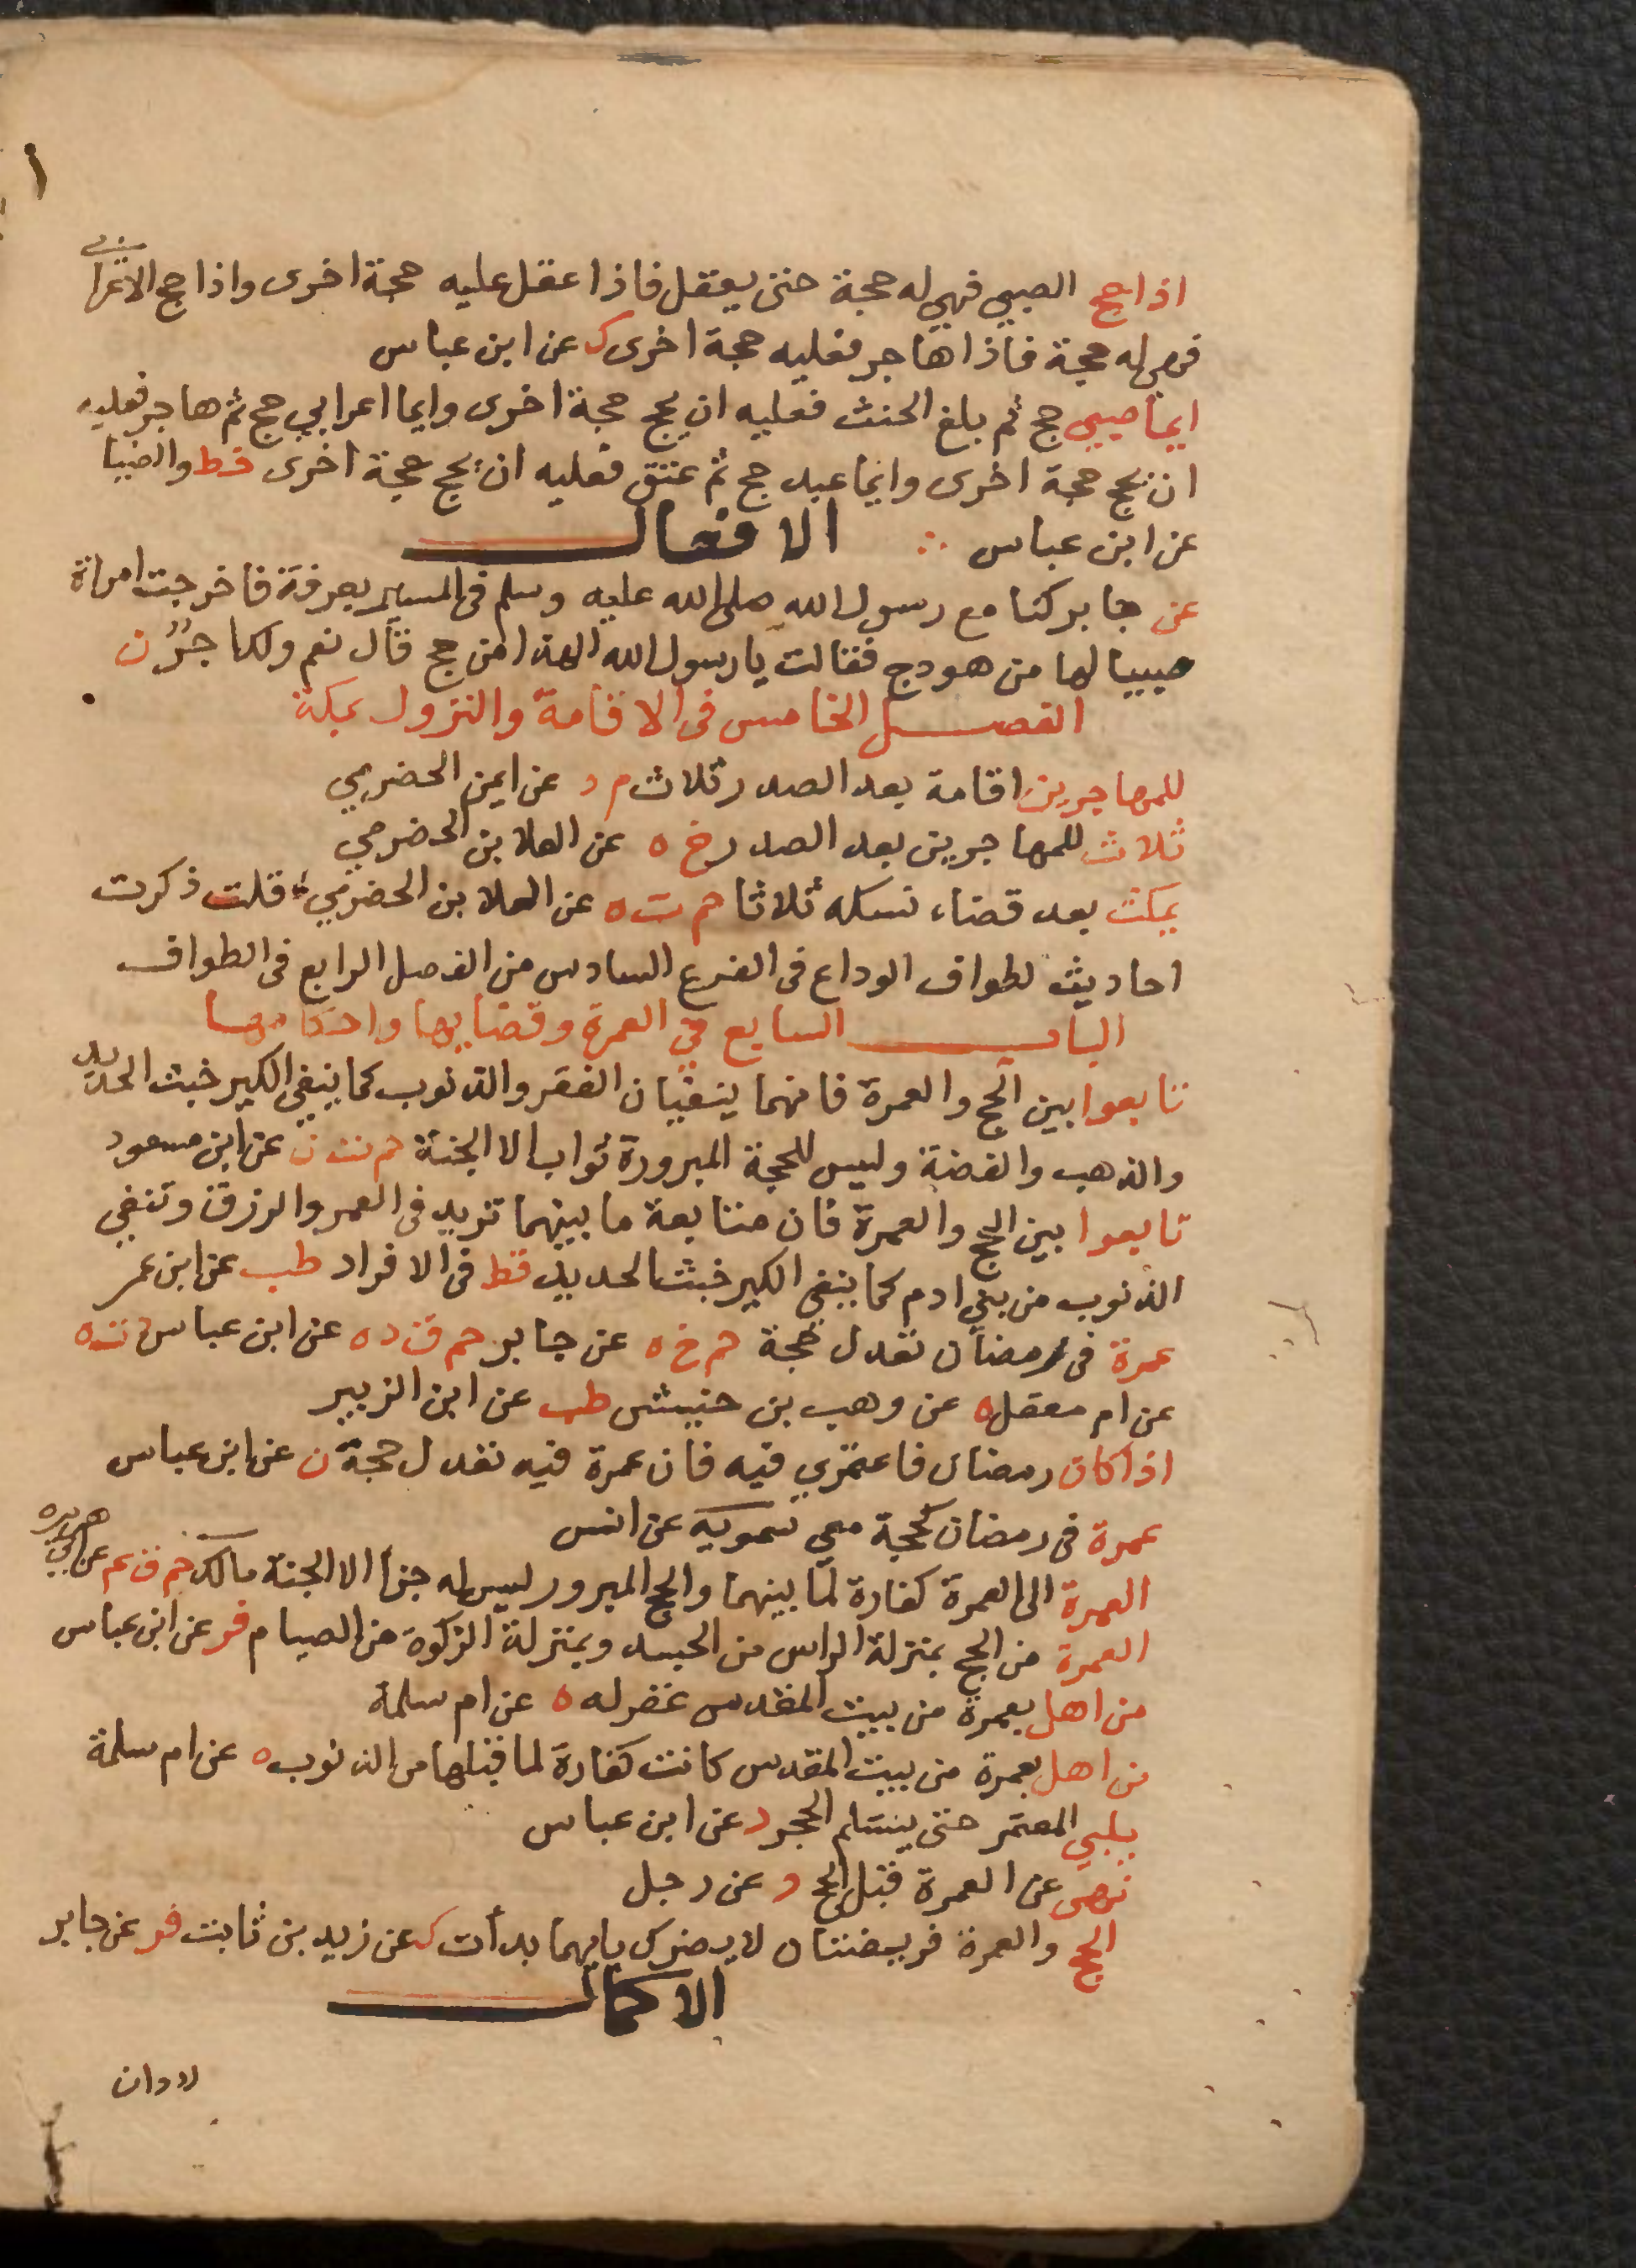 اذا حج الصبي فهي له حجة حتى يعقل فاذا عقل عليه حجة اخرى واذا حج الاعرابي
فهي له حجة فاذا هاجر فعليه حجة اخرى ك عن ابن عباس
ايما صبي حج ثم بلغ الحنث فعليه ان يحج حجة اخرى وايما اعرابي حج ثم هاجر فعليه
ان يحج حجة اخرى وايما عبد حج ثم عتق فعليه ان يحج حجة اخرى خط والضيا
عن ابن عباس ∴ الافعال
عن جابر كنا مع رسول الله صلى الله عليه وسلم فى المسير بعرفة فاخرجت امراة
صبيا لها من هودج فقالت يا رسول الله الهذا من حج قال نعم ولك اجر ن
الفصل الخامس فى الاقامة والنزول بمكة
للمهاجرين اقامة بعد الصدر ثلاث م د عن ايمن الحضرمي
ثلاث للمهاجرين بعد الصدر خ ه عن العلا بن الحضرمي
يمكث بعد قضاء نسكه ثلاثا حم ت ه عن العلا بن الحضرمي قلت ذكرت
احاديث لطواف الوداع فى الفرع السادس من الفصل الرابع فى الطواف
الباب السابع في العمرة وفضايلها واحكامها
تابعوا بين الحج والعمرة فانهما ينفيان الفقر والذنوب كما ينفي الكير خبث الحديد
والذهب والفضة وليس للحجة المبرورة ثواب الا الجنة حم ت ن عن ابن مسعود
تابعوا بين الحج والعمرة فان متابعة ما بينهما تزيد فى العمر والرزق وتنفي
الذنوب من بني ادم كما ينفي الكير خبث الحديد قط فى الافراد طب عن ابن عمر
عمرة فى رمضان تعدل حجة حم خ ه عن جابر حم ق د ه عن ابن عباس د ت ه
عن ام معقل ه عن وهب بن خنبش طب عن ابن الزبير
اذا كان رمضان فاعتمري فيه فان عمرة فيه تعدل حجة ن عن ابن عباس
عمرة فى رمضان كحجة معي سمويه عن انس
العمرة الى العمرة كفارة لما بينهما والحج المبرور ليس له جزا الا الجنة مالك حم ق عم عن ابي هريره
العمرة من الحج بمنزلة الراس من الجسد وبمنزلة الزكوة من الصيام فر عن ابن عباس
من اهل بعمرة من بيت المقدس غفر له ه عن ام سلمة
من اهل بعمرة من بيت المقدس كانت كفارة لما قبلها من الذنوب ه عن ام سلمة
يلبي المعتمر حتى يستلم الحجر د عن ابن عباس
نهى عن العمرة قبل الحج د عن رجل
الحج والعمرة فريضتان لا يضرك بايهما بدأت ك عن زيد بن ثابت فر عن جابر
الاكمال